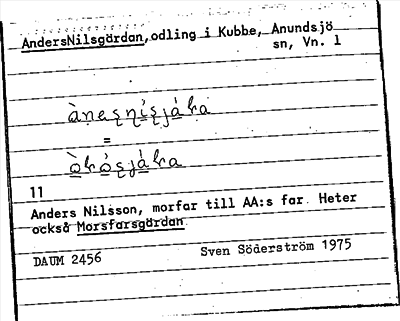 AndersNilsgårdan,odling i Kubbe, Anundsjö
sn, Vn. 1
=
11
Anders Nilsson, morfar till AA:s far. Heter
också Morsfarsgårdan.
DAUM 2456 Sven Söderström 1975